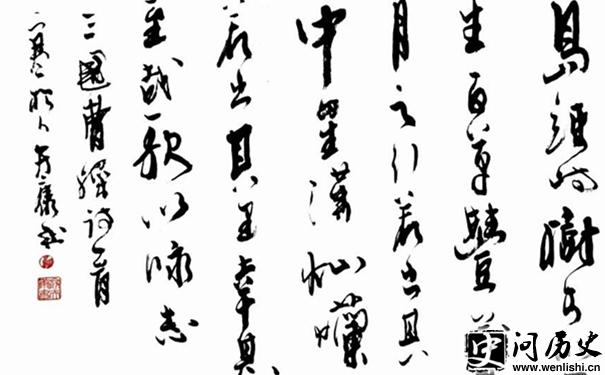 島竦峙樹木
生百草豐茂
月之行若出其
中星漢灿爛
若出其里幸甚
至哉歌以詠志
三國曹操詩一首
史
问历史
www.wenlishi.cn